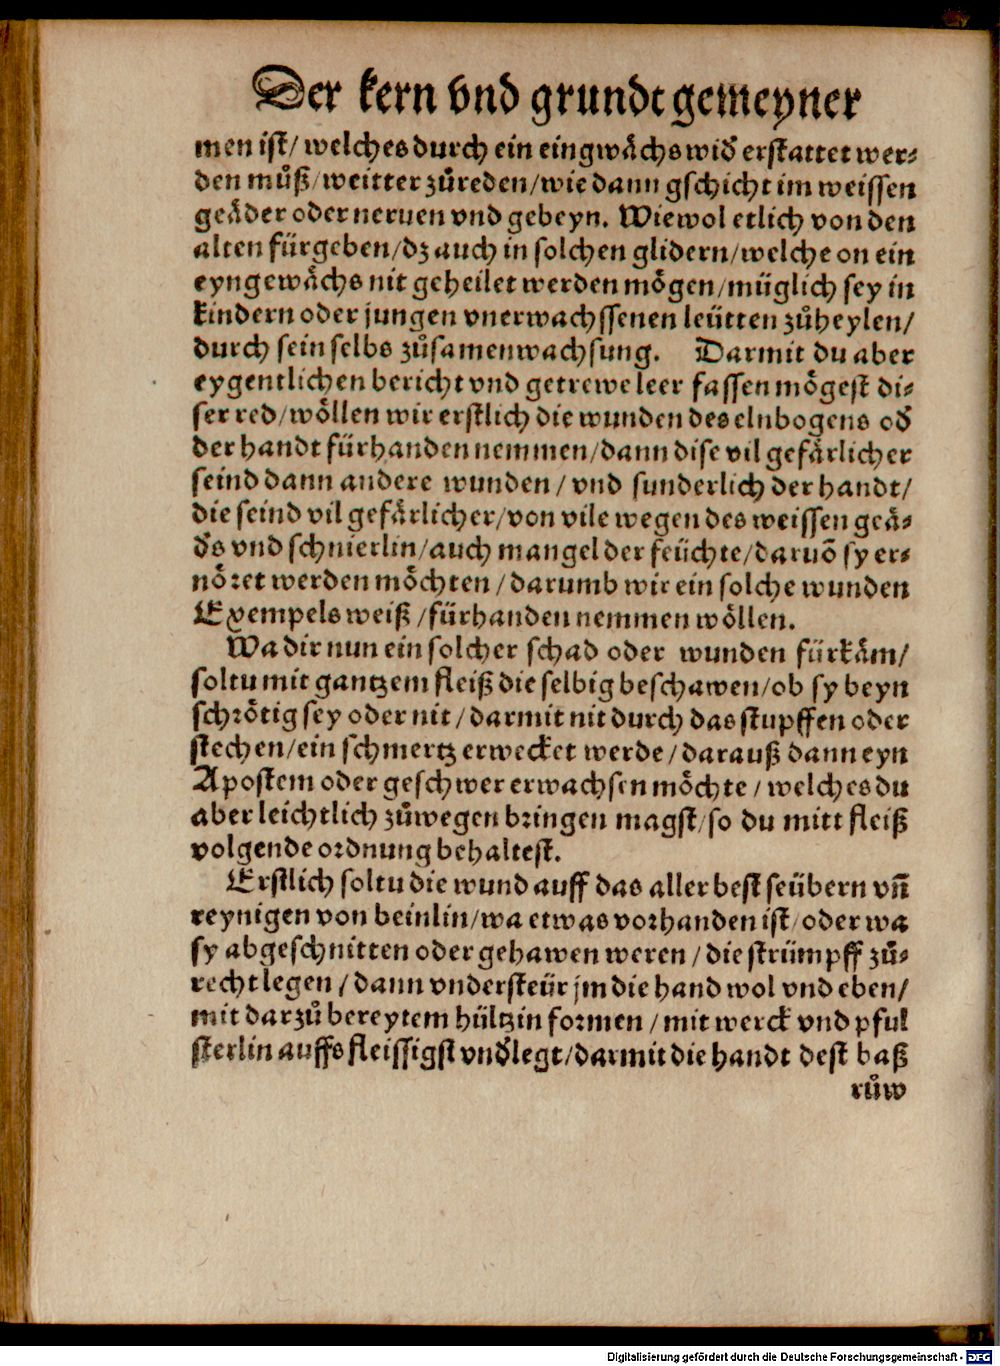 Der kern vnd grundt gemeyner
men ist/ welches durch ein eingwaͤchs wid̕ erstattet wer⸗
den muͤß/ weitter zuͦreden/ wie dann gschicht im weissen
geaͤder oder neruen vnd gebeyn. Wiewol etlich von den
alten fürgeben/ dz auch in solchen glidern/ welche on ein
eyngewaͤchs nit geheilet werden moͤgen/ müglich sey in
kindern oder jungen vnerwachssenen leütten zuͦheylen/
durch sein selbs zuͦsamenwachsung. Darmit du aber
eygentlichen bericht vnd getrewe leer fassen moͤgest di⸗
ser red/ woͤllen wir erstlich die wunden des elnbogens od̕
der handt fürhanden nemmen/ dann dise vil gefaͤrlicher
seind dann andere wunden/ vnd sunderlich der handt/
die seind vil gefaͤrlicher/ von vile wegen des weissen geaͤ⸗
d̕s vnd schnierlin/ auch mangel der feüchte/ daruõ sy er⸗
noͤret werden moͤchten/ darumb wir ein solche wunden
Exempels weiß/ fürhanden nemmen woͤllen.
Wa dir nun ein solcher schad oder wunden fürkaͤm/
soltu mit gantzem fleiß die selbig beschawen/ ob sy beyn
schroͤtig sey oder nit/ darmit nit durch das stupffen oder
stechen/ ein schmertz erwecket werde/ darauß dann eyn
Apostem oder geschwer erwachsen moͤchte/ welches du
aber leichtlich zuͦwegen bringen magst/ so du mitt fleiß
volgende ordnung behaltest.
Erstlich soltu die wund auff das aller best seübern vñ
reynigen von beinlin/ wa etwas vorhanden ist/ oder wa
sy abgeschnitten oder gehawen weren/ die strümpff zuͦ⸗
recht legen/ dann vndersteür jm die hand wol vnd eben/
mit darzuͦ bereytem hültzin formen/ mit werck vnd pful
sterlin auffs fleissigst vnd̕legt/ darmit die handt dest baß
ruͦw
Digitalisierung gefördert durch die Deutsche Forschungsgemeinschaft - DFG